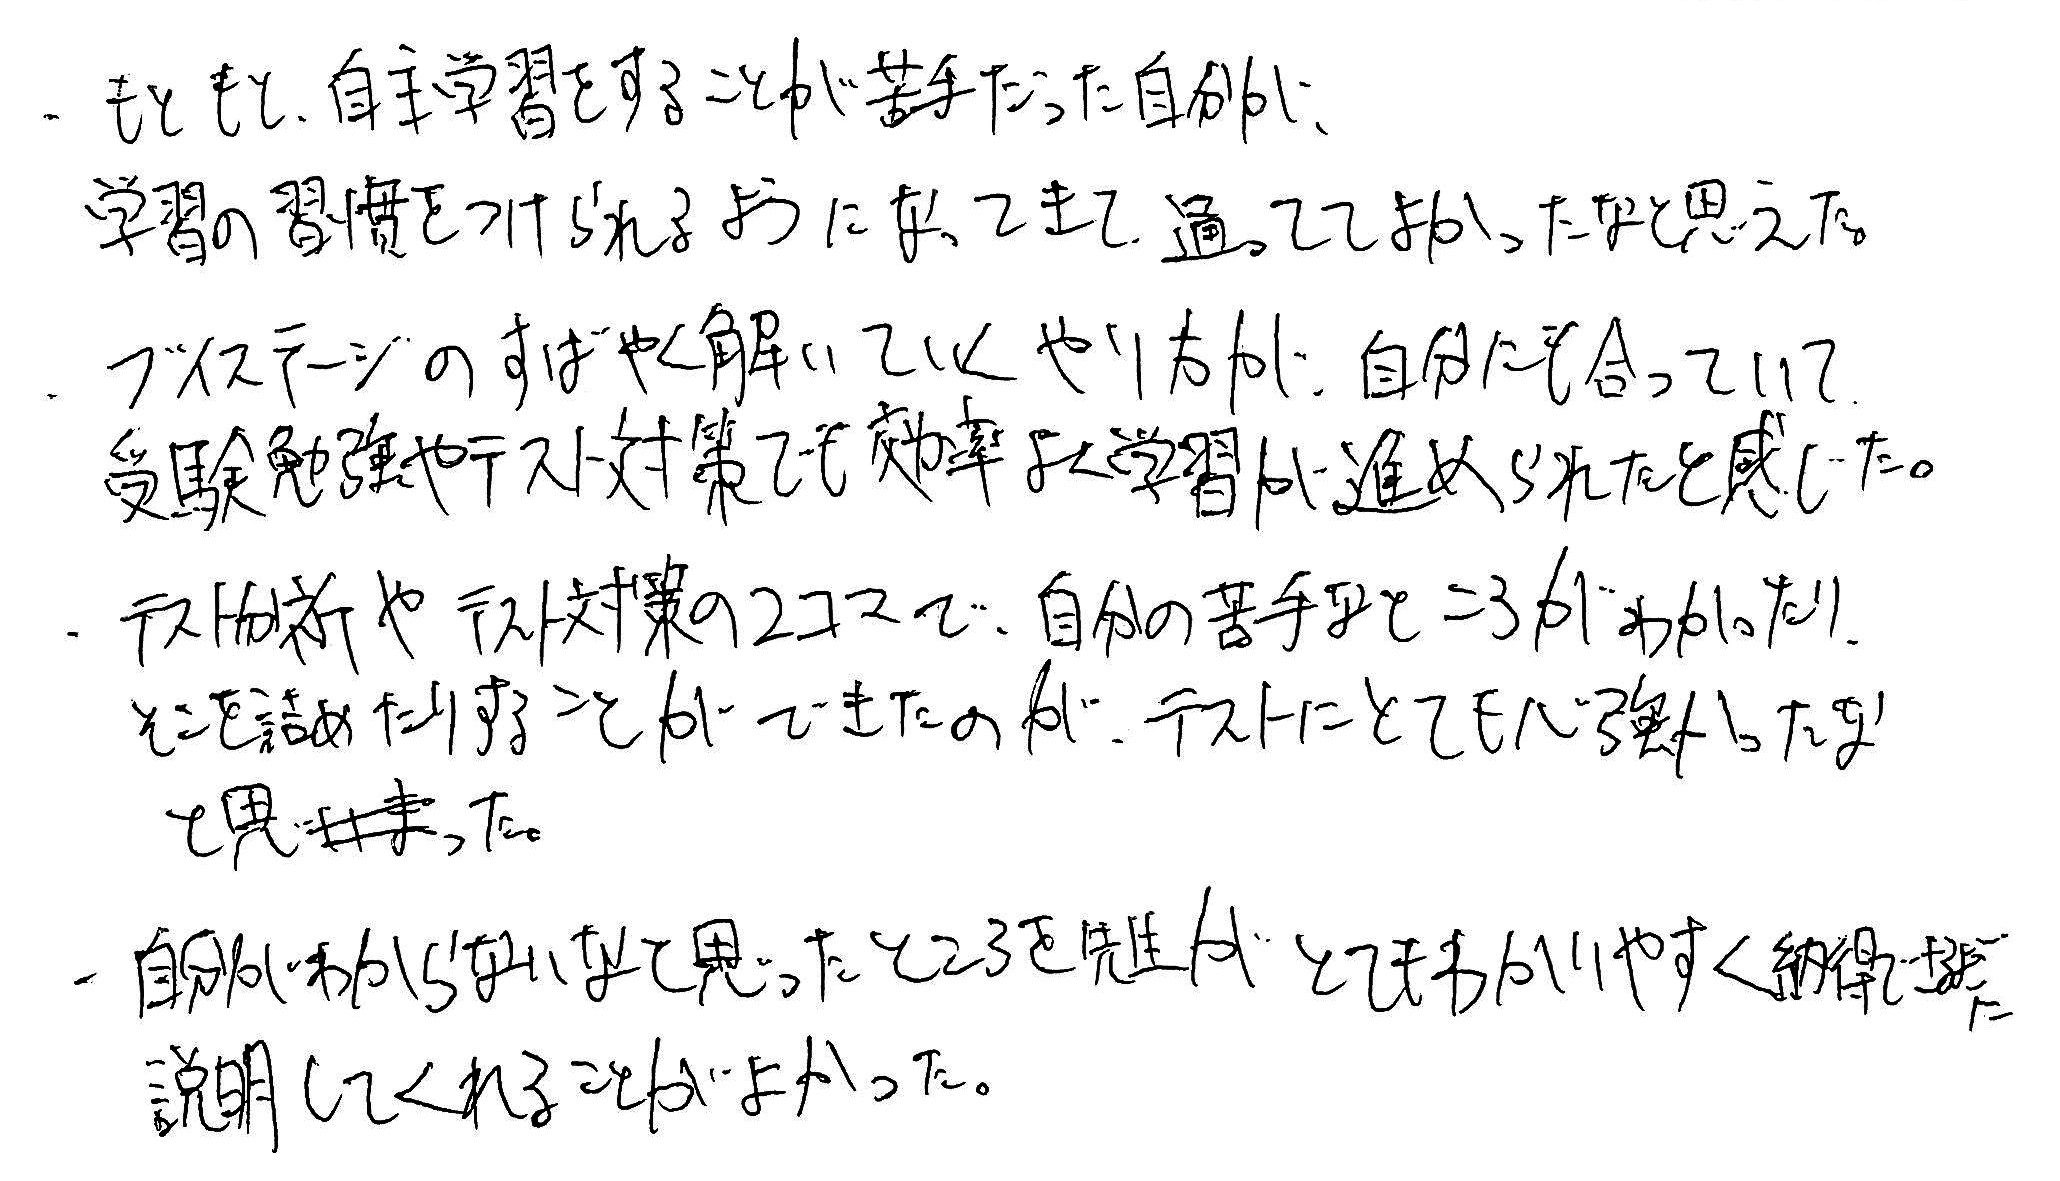 ・もともと、自主学習をすることが苦手だった自分が、
学習の習慣をつけられるようになってきて、通っててよかったなと思えた。
・ブイステージのすばやく解いていくやり方が、自分にも合っていて、
受験勉強やテスト対策でも効率よく学習が進められたと感じた。
・テスト分析やテスト対策の2コマで、自分の苦手なところがわかったり、
そこを詰めたりすることができたのが、テストにとても心強かったな
と思った。
・自分がわからないなと思ったところを先生がとてもわかりやすく納得できるまでに
説明してくれることがよかった。